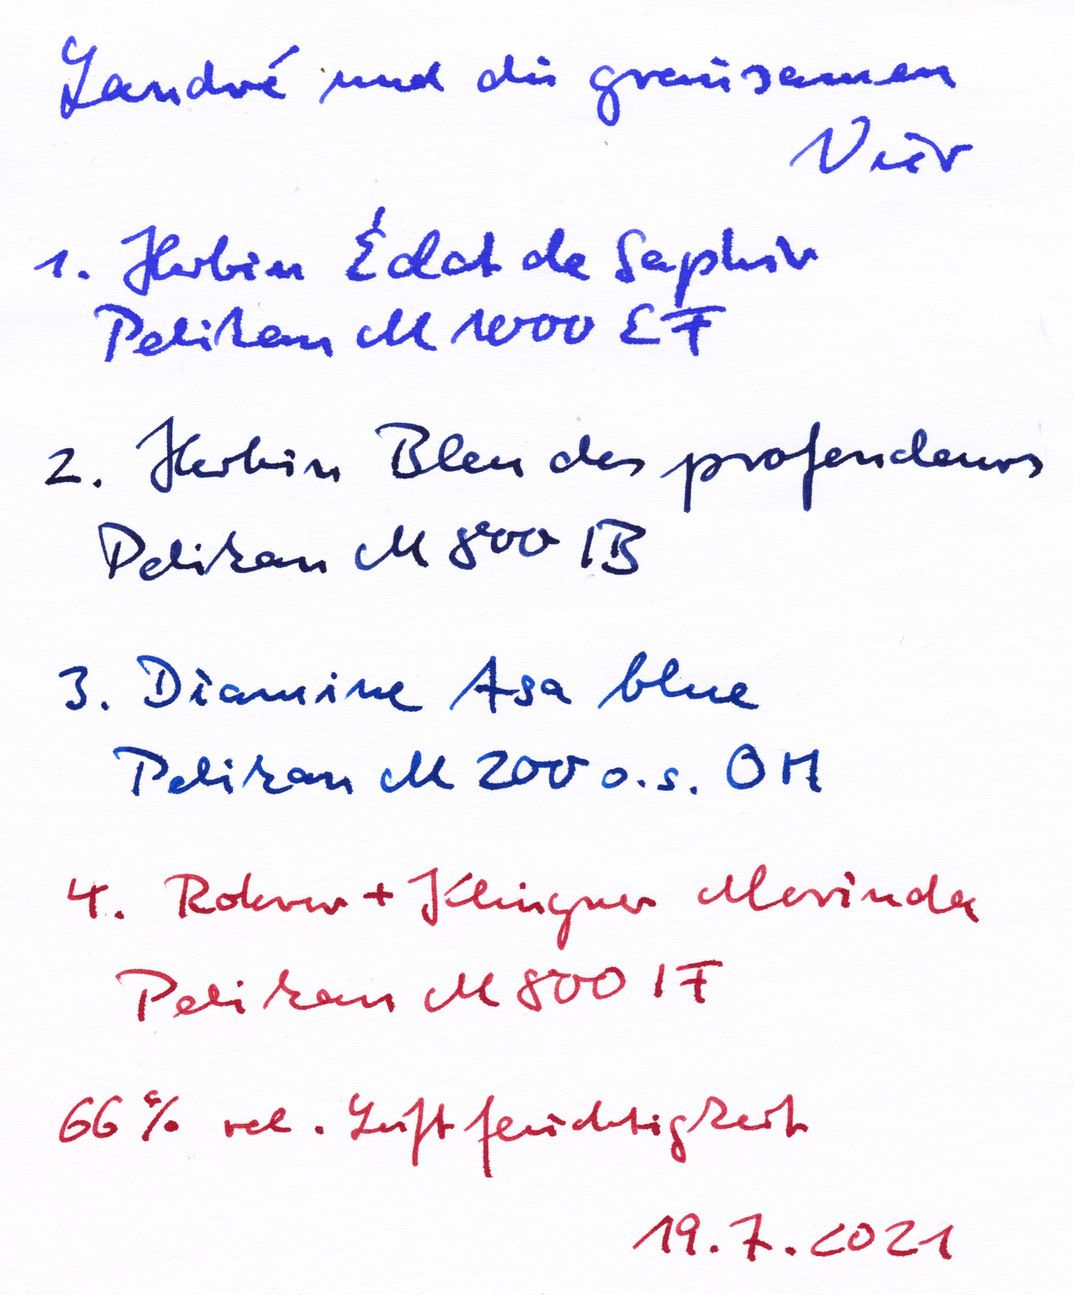 Landré und die grausamen
Vier
1. Herbin Éclat de Saphir
Pelikan M 1000 EF
2. Herbin Bleu des profendeurs
Pelikan M 800 IB
3. Diamine Asa blue
Pelikan M 200 o.s. OM
4. Rohrer + Klingner Morinda
Pelikan M 800 IF
66 % rel. Luftfeuchtigkeit
19.7.2021